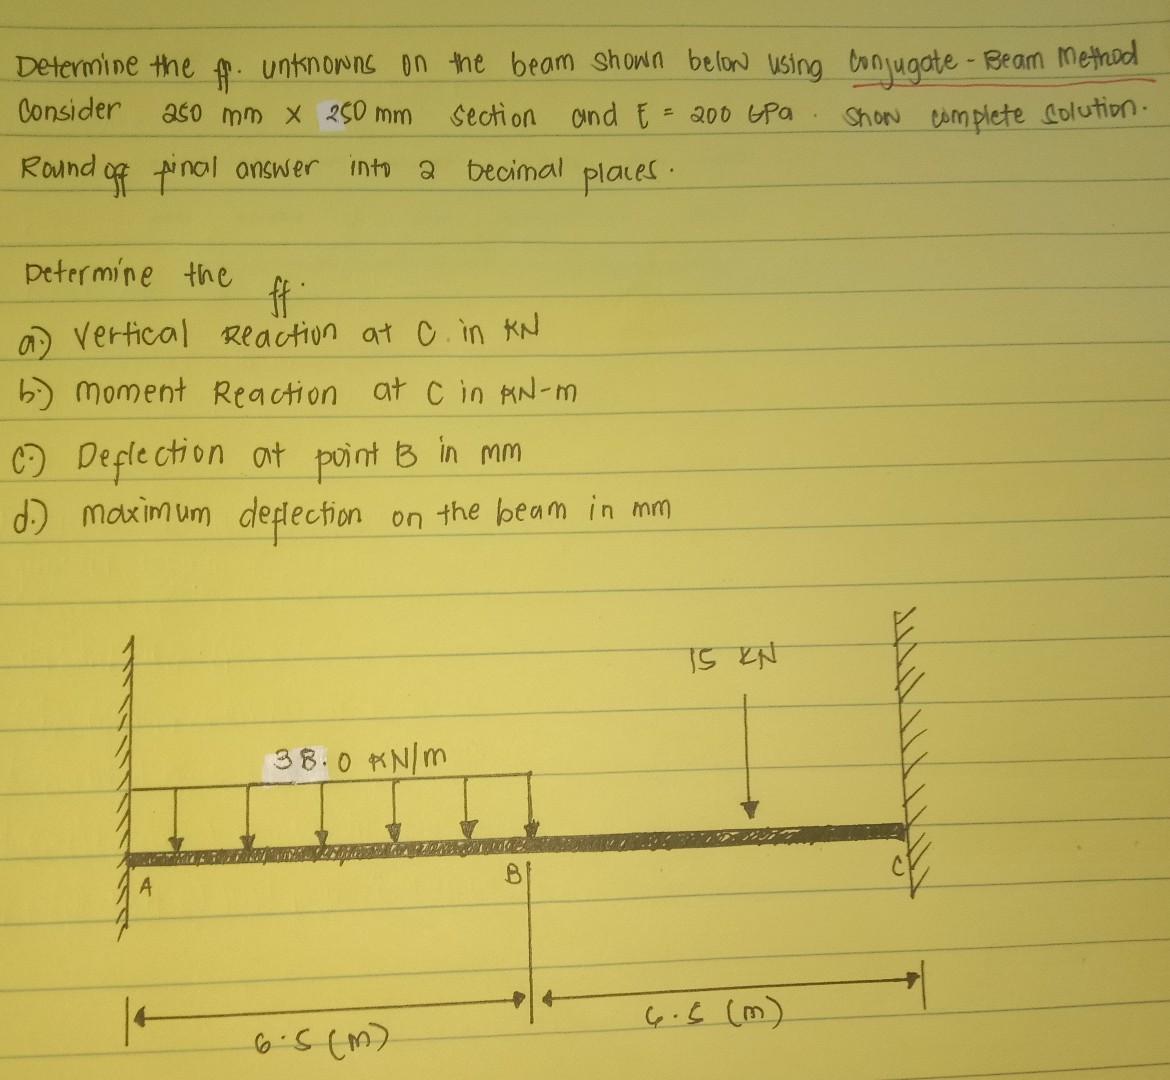 Determine the ff. unknowns on the beam shown below using Conjugate-Beam Method
Consider 250 mm x 250 mm section and E = 200 GPa. Show complete solution.
Round off final answer into 2 decimal places.
Determine the ff.
a.) Vertical Reaction at C. in KN
b.) Moment Reaction at C in KN-m
c.) Deflection at point B in mm
d.) maximum deflection on the beam in mm
15 KN
38.0 KN/m
A
B
C
6.5 (m)
6.5 (m)